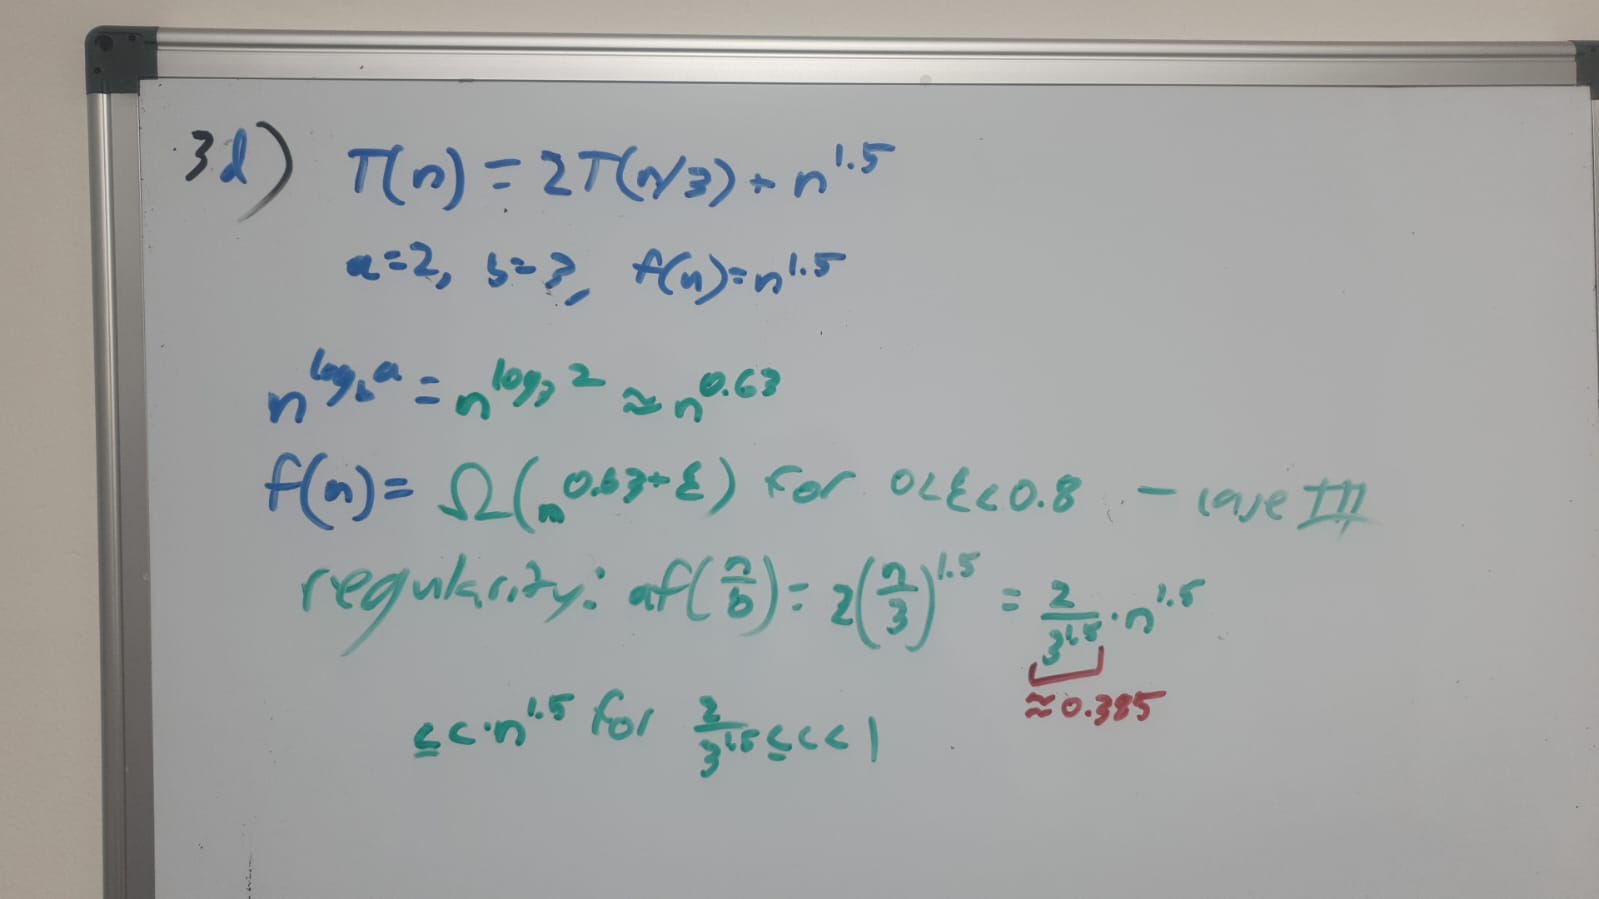 3d) T(n) = 2T(n/3) + n^1.5
a=2, b=3, f(n)=n^1.5
n^log_b a = n^log_3 2 ≈ n^0.63
f(n)= Ω(n^0.63+ε) for 0<ε<0.8 — case III
regularity: af(n/b) = 2(n/3)^1.5 = 2/3^1.5 · n^1.5
≈0.385
≤ c·n^1.5 for 2/3^1.5 ≤ c < 1